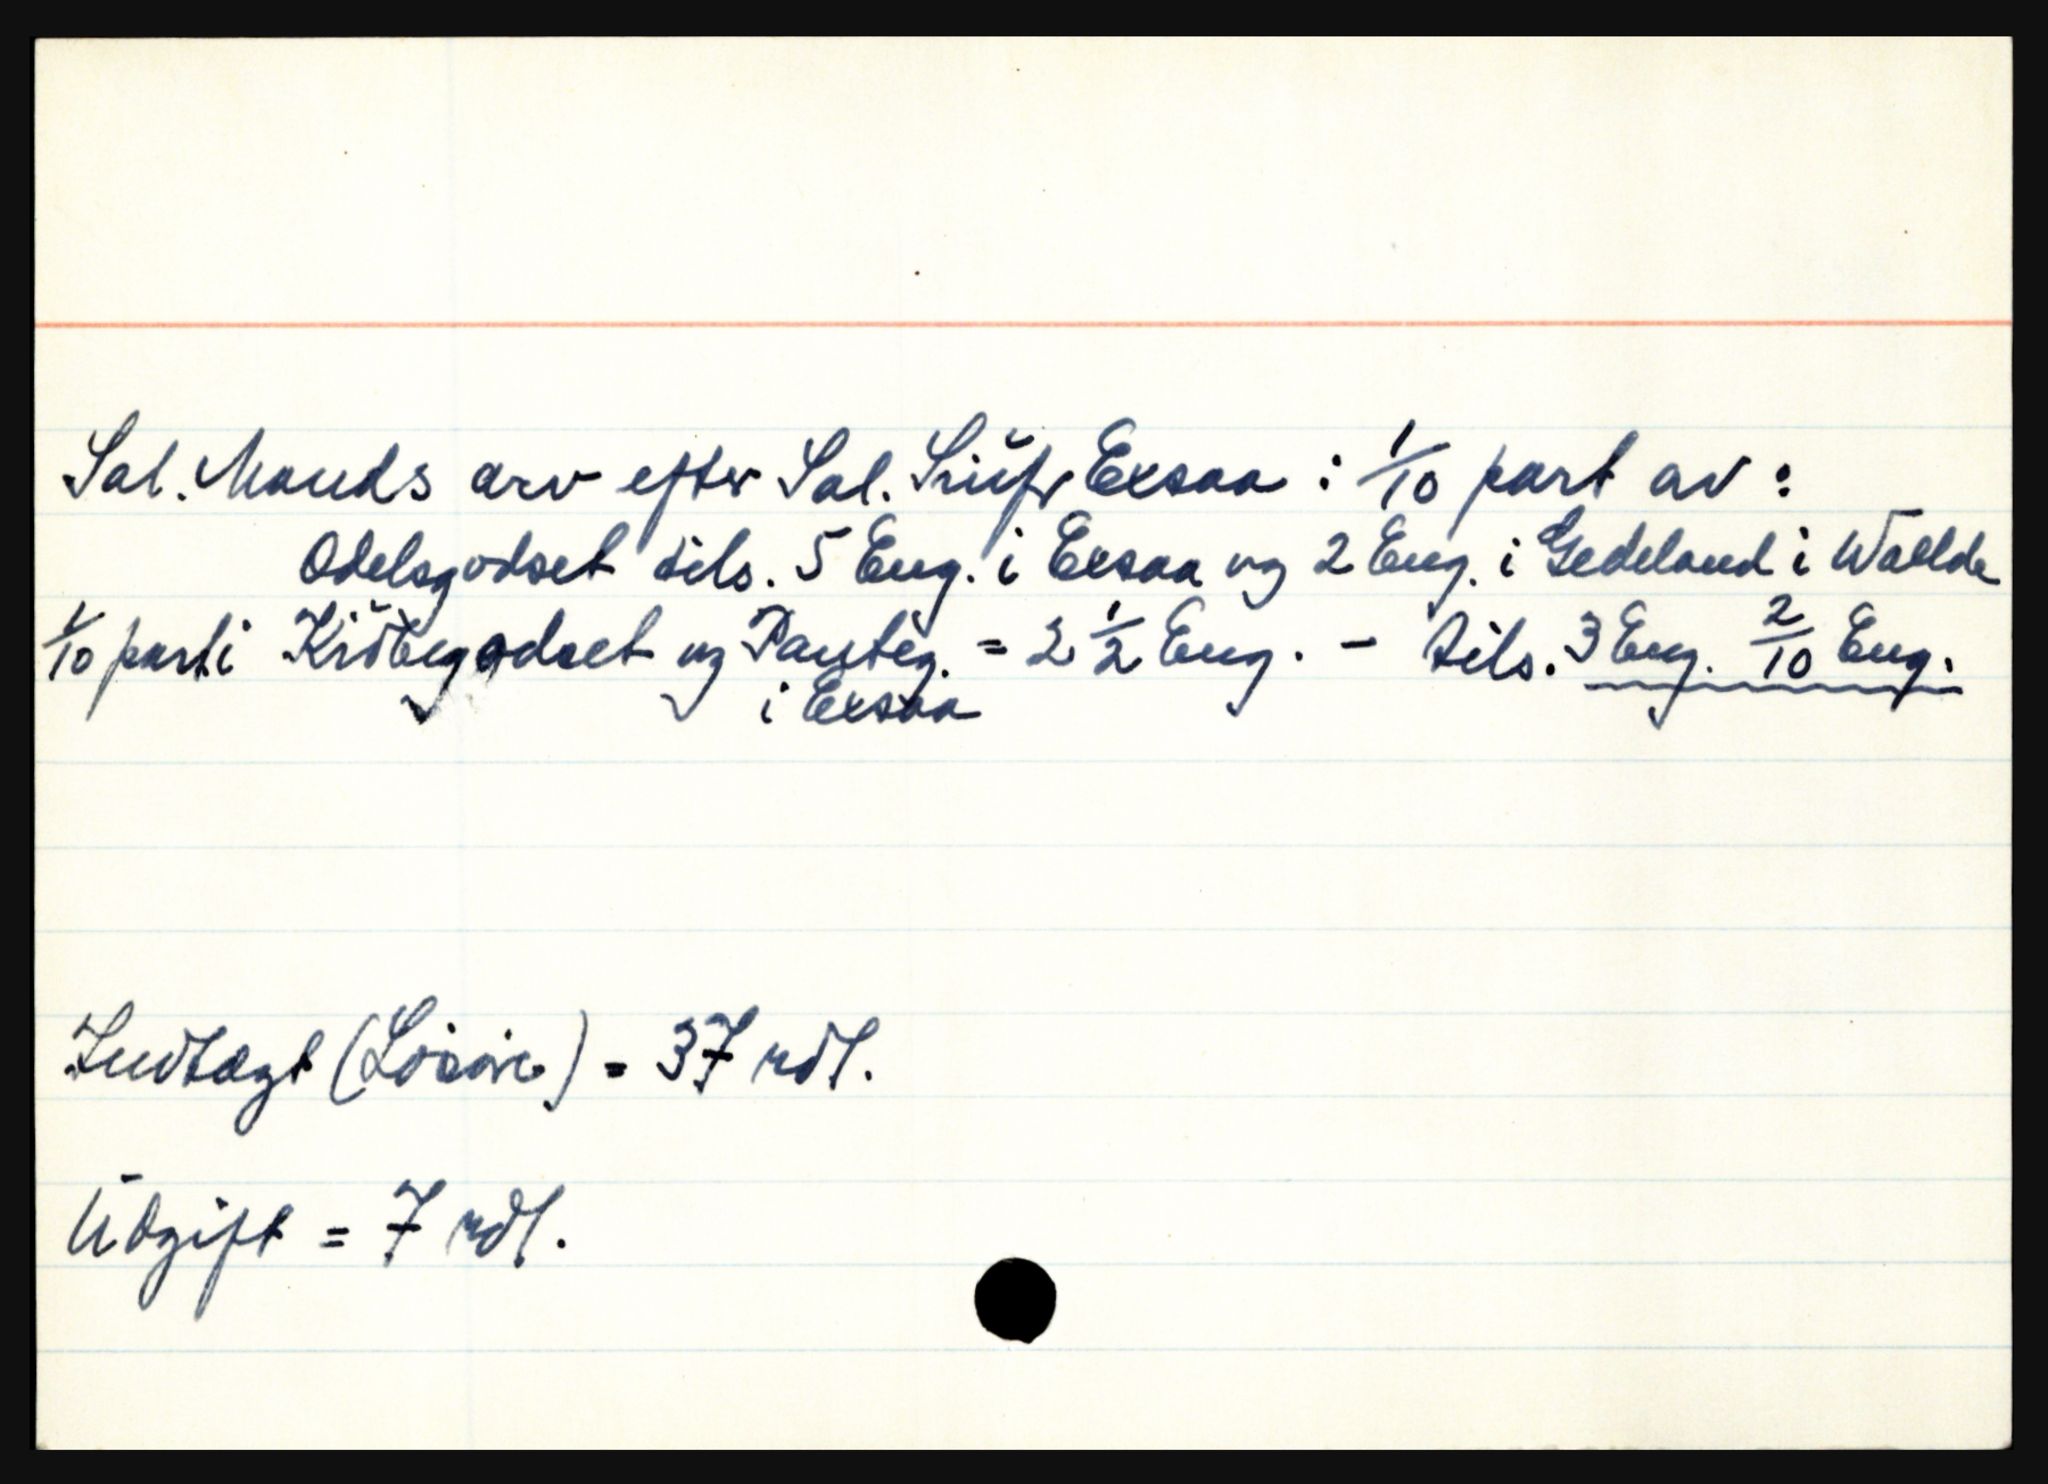 Sal. Mands arv efter Sal. Siufr Exsaa : 1/10 part av :
Odelsgodset tils. 5 Eng. i Exsaa og 2 Eng. i Gedeland i Walde
1/10 part i Kiøbegodset og Panteg. = 2 1/2 Eng. - tils. 3 Eng. 2/10 Eng.
i Exsaa
Indtægt (Løsøre) = 37 rdl.
Udgift = 7 rdl.